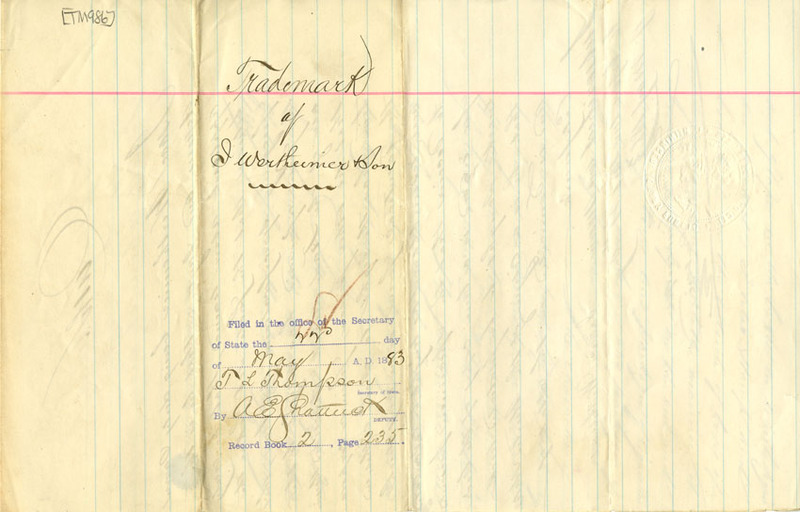 [TM986]
Trademark
of
I Wertheimer & Son
Filed in the office of the Secretary
of State the 22d day
of May A. D. 1883
T L Thompson
Secretary of State.
By A E Shattuck
DEPUTY.
Record Book 2, Page 235.